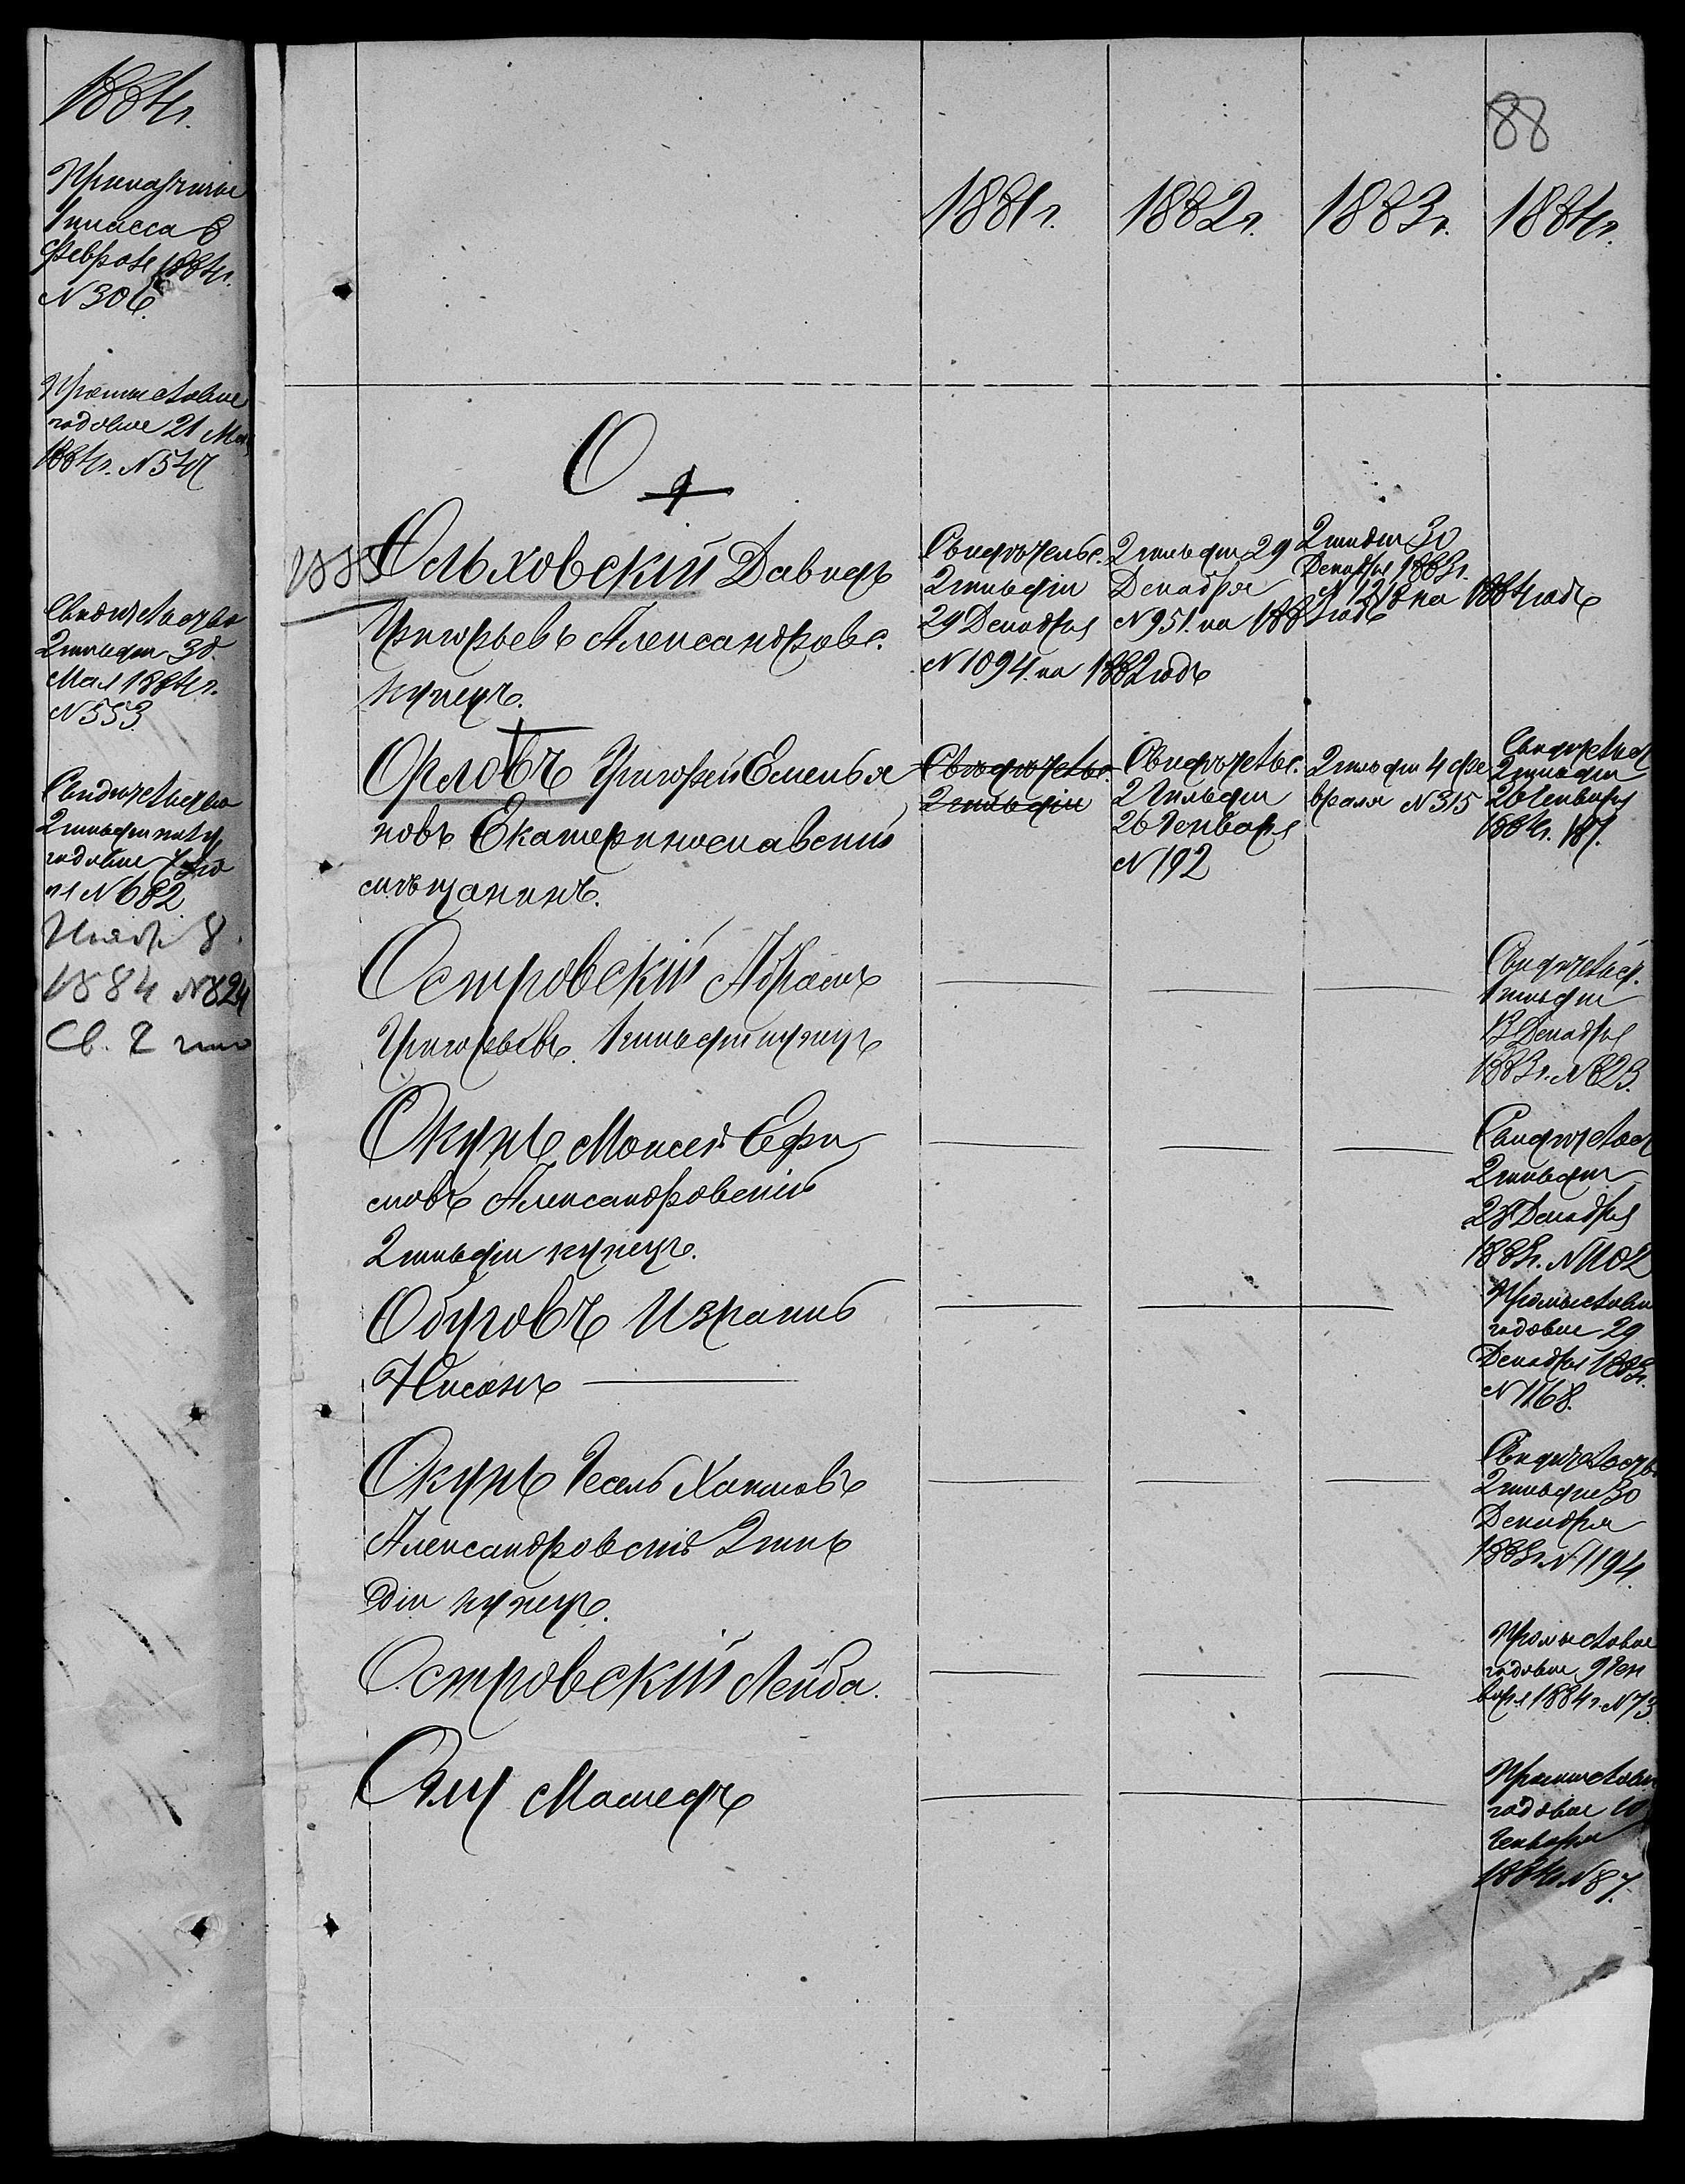 1884г.
Приказчичье
1 класса 8
Февраля 1884г.
N 306.
Промысловое
годовое 21 Мая
1884г. N 547
Свидѣтельство
2 гильдіи 30
Мая 1884г.
N 553
Свидѣтельство
2 гильдіи
годовое
N 682
8
1884 N 824
Св. 2 гил
88
1881г. 1882г. 1883г. 1884г.
О
9
1885
Ольховскій Давидъ
Григорьевъ Александровс.
купецъ.
Свидѣтельс.
2 гильдіи
29 Декабря
N 1094. на 1882 годъ
2 гильдіи 29
Декабря
N 951. на 1883 годъ
2 гильдіи 30
Декабря 1883г.
N 1218 на 1884 годъ
Орловъ Григорій Емелья
новъ Екатеринославскій
мѣщанинъ.
Свидѣтельс.
2 гильдіи
Свидѣтельс.
2 Гильдіи
26 Генваря
N 192
2 гильдіи 4 Фе
враля N 315
Свидѣтельст
2 гильдіи
26 Генваря
1884г. 187.
Островскій Абрамъ
Григорьевъ. 1 гильдіи купецъ
Свидѣтельст.
1 гильдіи
13 Декабря
1883г. N 823.
Окунь Моисей Ефи
мовъ Александровскій
2 гильдіи купецъ.
Свидѣтельст
2 гильдіи
28 Декабря
1883г. N 1102
Обуховъ Израиль
Нисонъ
Промыслово
годовое 29
Декабря 1883г.
N 1168.
Окунь Іесель Хаимовъ
Александровскій 2 гиль
діи купецъ.
Свидѣтельство
2 гильдіи 30
Декабря
1883г. N 1194.
Островскій Лейба.
Промысловое
годовое 9 Ген
варя 1884 г. N 73.
Мамедъ
Промыслово
годовое 10
Генваря
1884г. N 87.